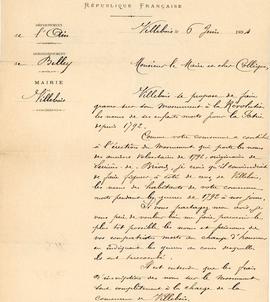 RÉPUBLIQUE FRANÇAISE
DÉPARTEMENT
de l'Ain
ARRONDISSEMENT
de Belley
MAIRIE
de Villebois
Villebois le 6 Juin
Monsieur le Maire et cher Collègue,
Villebois se propose de faire
graver sur son Monument à la Révolution
les noms de ses enfants morts pour la Patrie
depuis 1792.
Comme votre commune a contribué
à l'érection du Monument qui porte les noms
de anciens volontaires de 1792, originaires de
de faire figurer à côté de ceux de Villebois,
les noms des habitants de votre commune
morts pendant les guerres de 1792 à nos jours
Si vous partagez mon
de vouloir bien me faire parvenir le
plus tôt possible les noms et prénoms de
vos compatriotes morts au champ d'honneur
en indiquant les guerres au cours desquelles
ils ont succombé.
Il est entendu que les frais
d'inscription des noms sur le Monument
sont complètement à la charge de la
commune de Villebois.